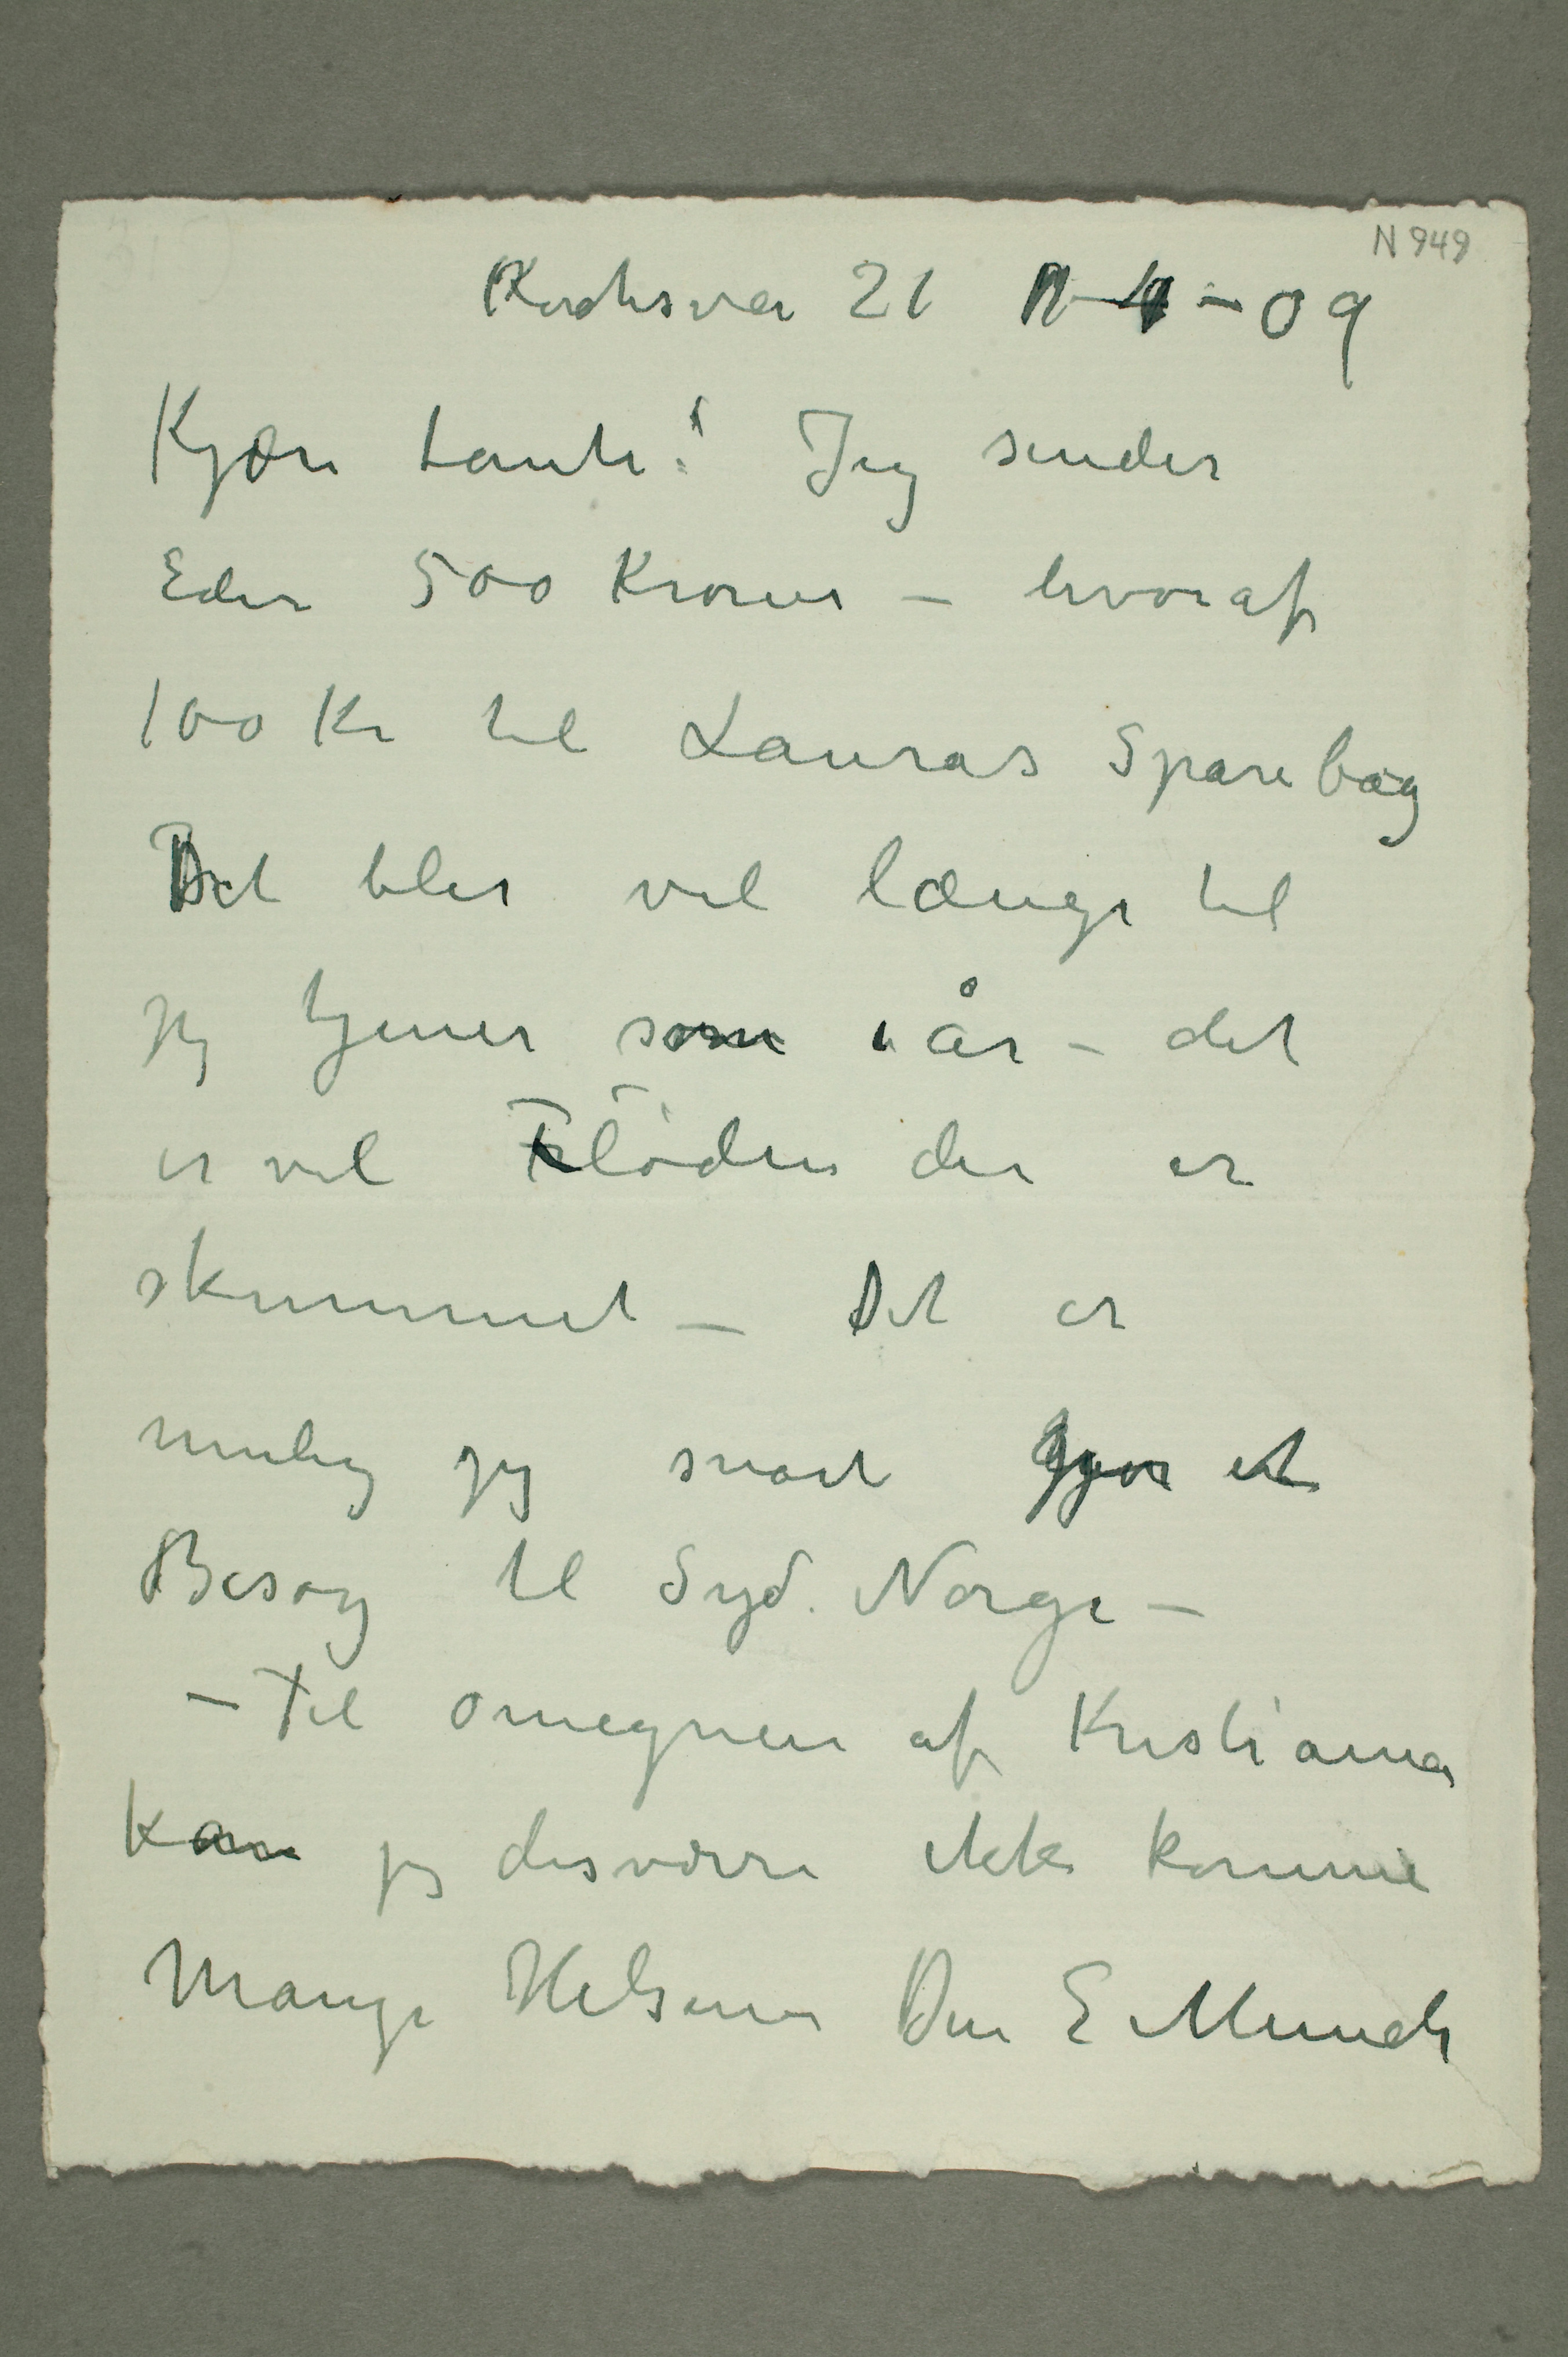 N 949
Kochsvei 21 – 09
Kjære tante! Jeg sender
Eder 500 Kroner – hvoraf
100 Kr til Lauras Sparebog
Det blir vel længe til
jeg tjener som iår – det
er vel Fløden der er
skummet – Det er
mulig jeg snart gjør et
Besøg til Syd. Norge –
– Til omegnen af Kristiania
kan jeg desværre ikke komme
Mange Hilsener Din E Munch